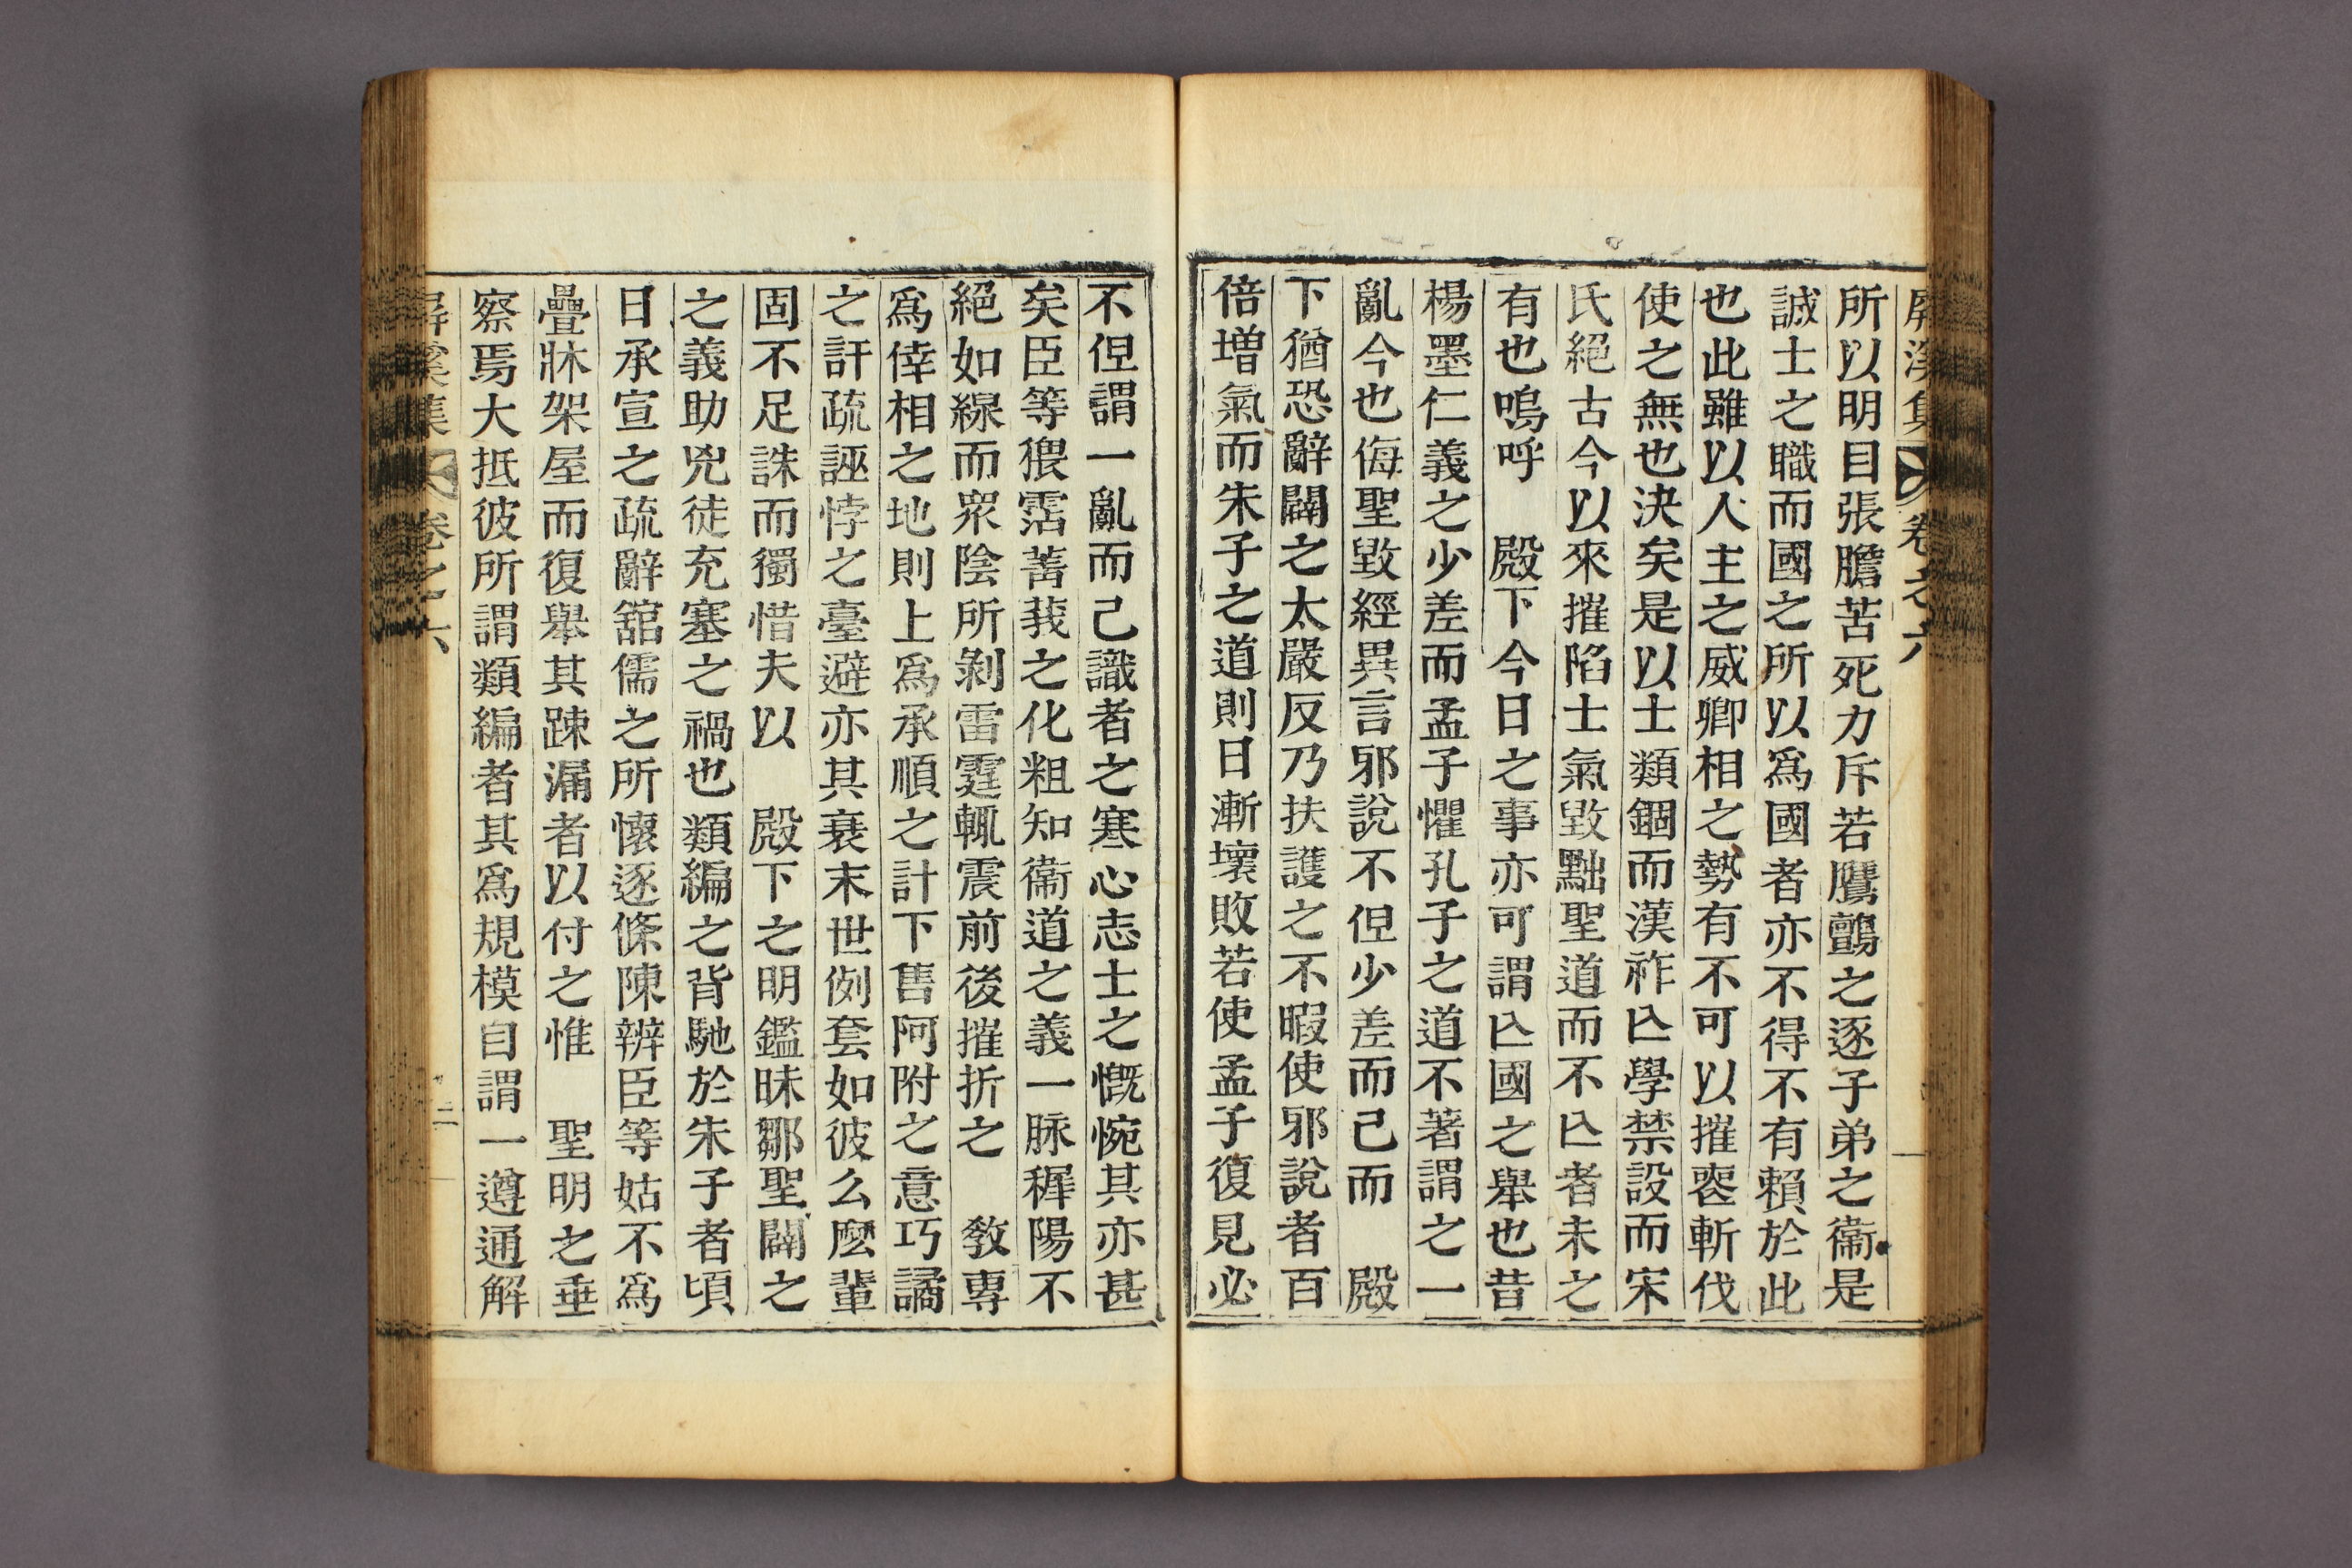 屛溪集 卷之六 一
所以明目張膽苦死力斥若鷹鸇之逐子弟之衞是
誠士之職而國之所以爲國者亦不得不有賴於此
也此雖以人主之威卿相之勢有不可以摧䘮斬伐
使之無也決矣是以士類錮而漢祚亾學禁設而宋
氏絕古今以來摧陷士氣毀黜聖道而不亾者未之
有也嗚呼 殿下今日之事亦可謂亾國之舉也昔
楊墨仁義之少差而孟子懼孔子之道不著謂之一
亂今也侮聖毀經異言邪說不但少差而已而 殿
下猶恐辭闢之太嚴反乃扶護之不暇使邪說者百
倍增氣而朱子之道則日漸壞敗若使孟子復見必
不但謂一亂而已識者之寒心志士之慨惋其亦甚
矣臣等猥霑菁莪之化粗知衞道之義一脉穉陽不
絕如線而衆陰所剝雷霆輒震前後摧折之 敎專
爲倖相之地則上爲承順之計下售阿附之意巧譎
之訐疏誣悖之臺避亦其衰末世例套如彼么麽輩
固不足誅而獨惜夫以 殿下之明鑑昧鄒聖闢之
之義助兇徒充塞之禍也類編之背馳於朱子者頃
日承宣之疏辭舘儒之所懷逐條陳辨臣等姑不爲
疊牀架屋而復舉其踈漏者以付之惟 聖明之垂
察焉大抵彼所謂類編者其爲規模自謂一遵通解
屛溪集 卷之六 二